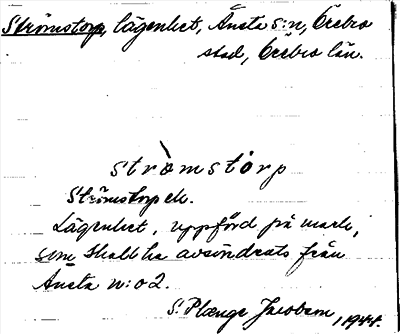 Strömstorp, lägenhet, Ånsta s:n, Örebro
stad, Örebro län.
stròmstòrp
Strömstorp
Lägenhet, uppförd på mark,
som skall ha avsöndrats från
Ånsta n:o 2.
S. Plænge Jacobson, 1944.